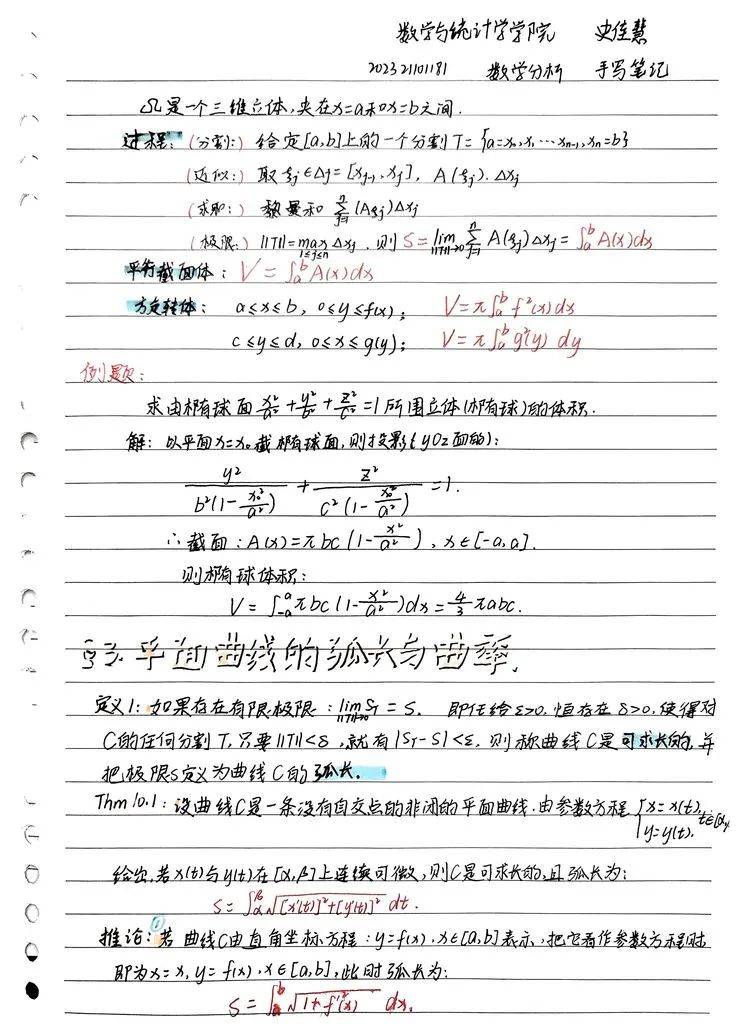 数学与统计学学院 史佳慧
202321101181 数学分析 手写笔记
Ω是一个三维立体,夹在x=a和x=b之间.
过程:(分割:) 给定[a,b]上的一个分割T={a=x₀,x₁…xₙ₋₁,xₙ=b}
(近似:) 取ξj∈Δj=[xj-1,xj], A(ξj)·Δxj
(求和:) 黎曼和 ∑ⁿj=1 (Aξj)Δxj
(极限:) ||T||=max 1≤j≤n Δxj, 则 S=lim ||T||→0 ∑ⁿj=1 A(ξj)Δxj=∫ₐᵇA(x)dx
平行截面体: V=∫ₐᵇA(x)dx
方定转体: a≤x≤b, 0≤y≤f(x); V=π∫ₐᵇf²(x)dx
c≤y≤d, 0≤x≤g(y); V=π∫ₐᵇg²(y) dy
例题:
求由椭球面 x²/a²+y²/b²+z²/c²=1所围立体(椭球)的体积.
解: 以平面x=x₀截椭球面,则投影(yOz面的):
y²/(b²(1-x₀²/a²)) + z²/(c²(1-x₀²/a²)) =1.
∴截面:A(x)=πbc(1-x²/a²), x∈[-a,a].
则椭球体积:
V=∫₋ₐᵃπbc(1-x²/a²)dx=4/3πabc.
§3.平面曲线的弧长与曲率.
定义1:如果存在有限极限:lim ||T||→0 S_T=S. 即任给ε>0,恒存在δ>0,使得对
C的任何分割T,只要||T||<δ,就有|S_T-S|<ε,则称曲线C是可求长的,并
把极限S定义为曲线C的弧长.
Thm 10.1:设曲线C是一条没有自交点的非闭的平面曲线.由参数方程{x=x(t), y=y(t). t∈[α,
给出,若x(t)与y(t)在[α,β]上连续可微,则C是可求长的,且弧长为:
S=∫αᵝ√([x'(t)]²+[y'(t)]²) dt.
推论①:若曲线C由直角坐标方程:y=f(x),x∈[a,b]表示,把它看作参数方程时
即为x=x,y=f(x),x∈[a,b],此时弧长为:
S=∫ₐᵇ√(1+f'²(x)) dx.